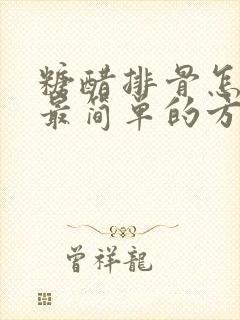 糖醋排骨怎
最简单的方
曾祥龍